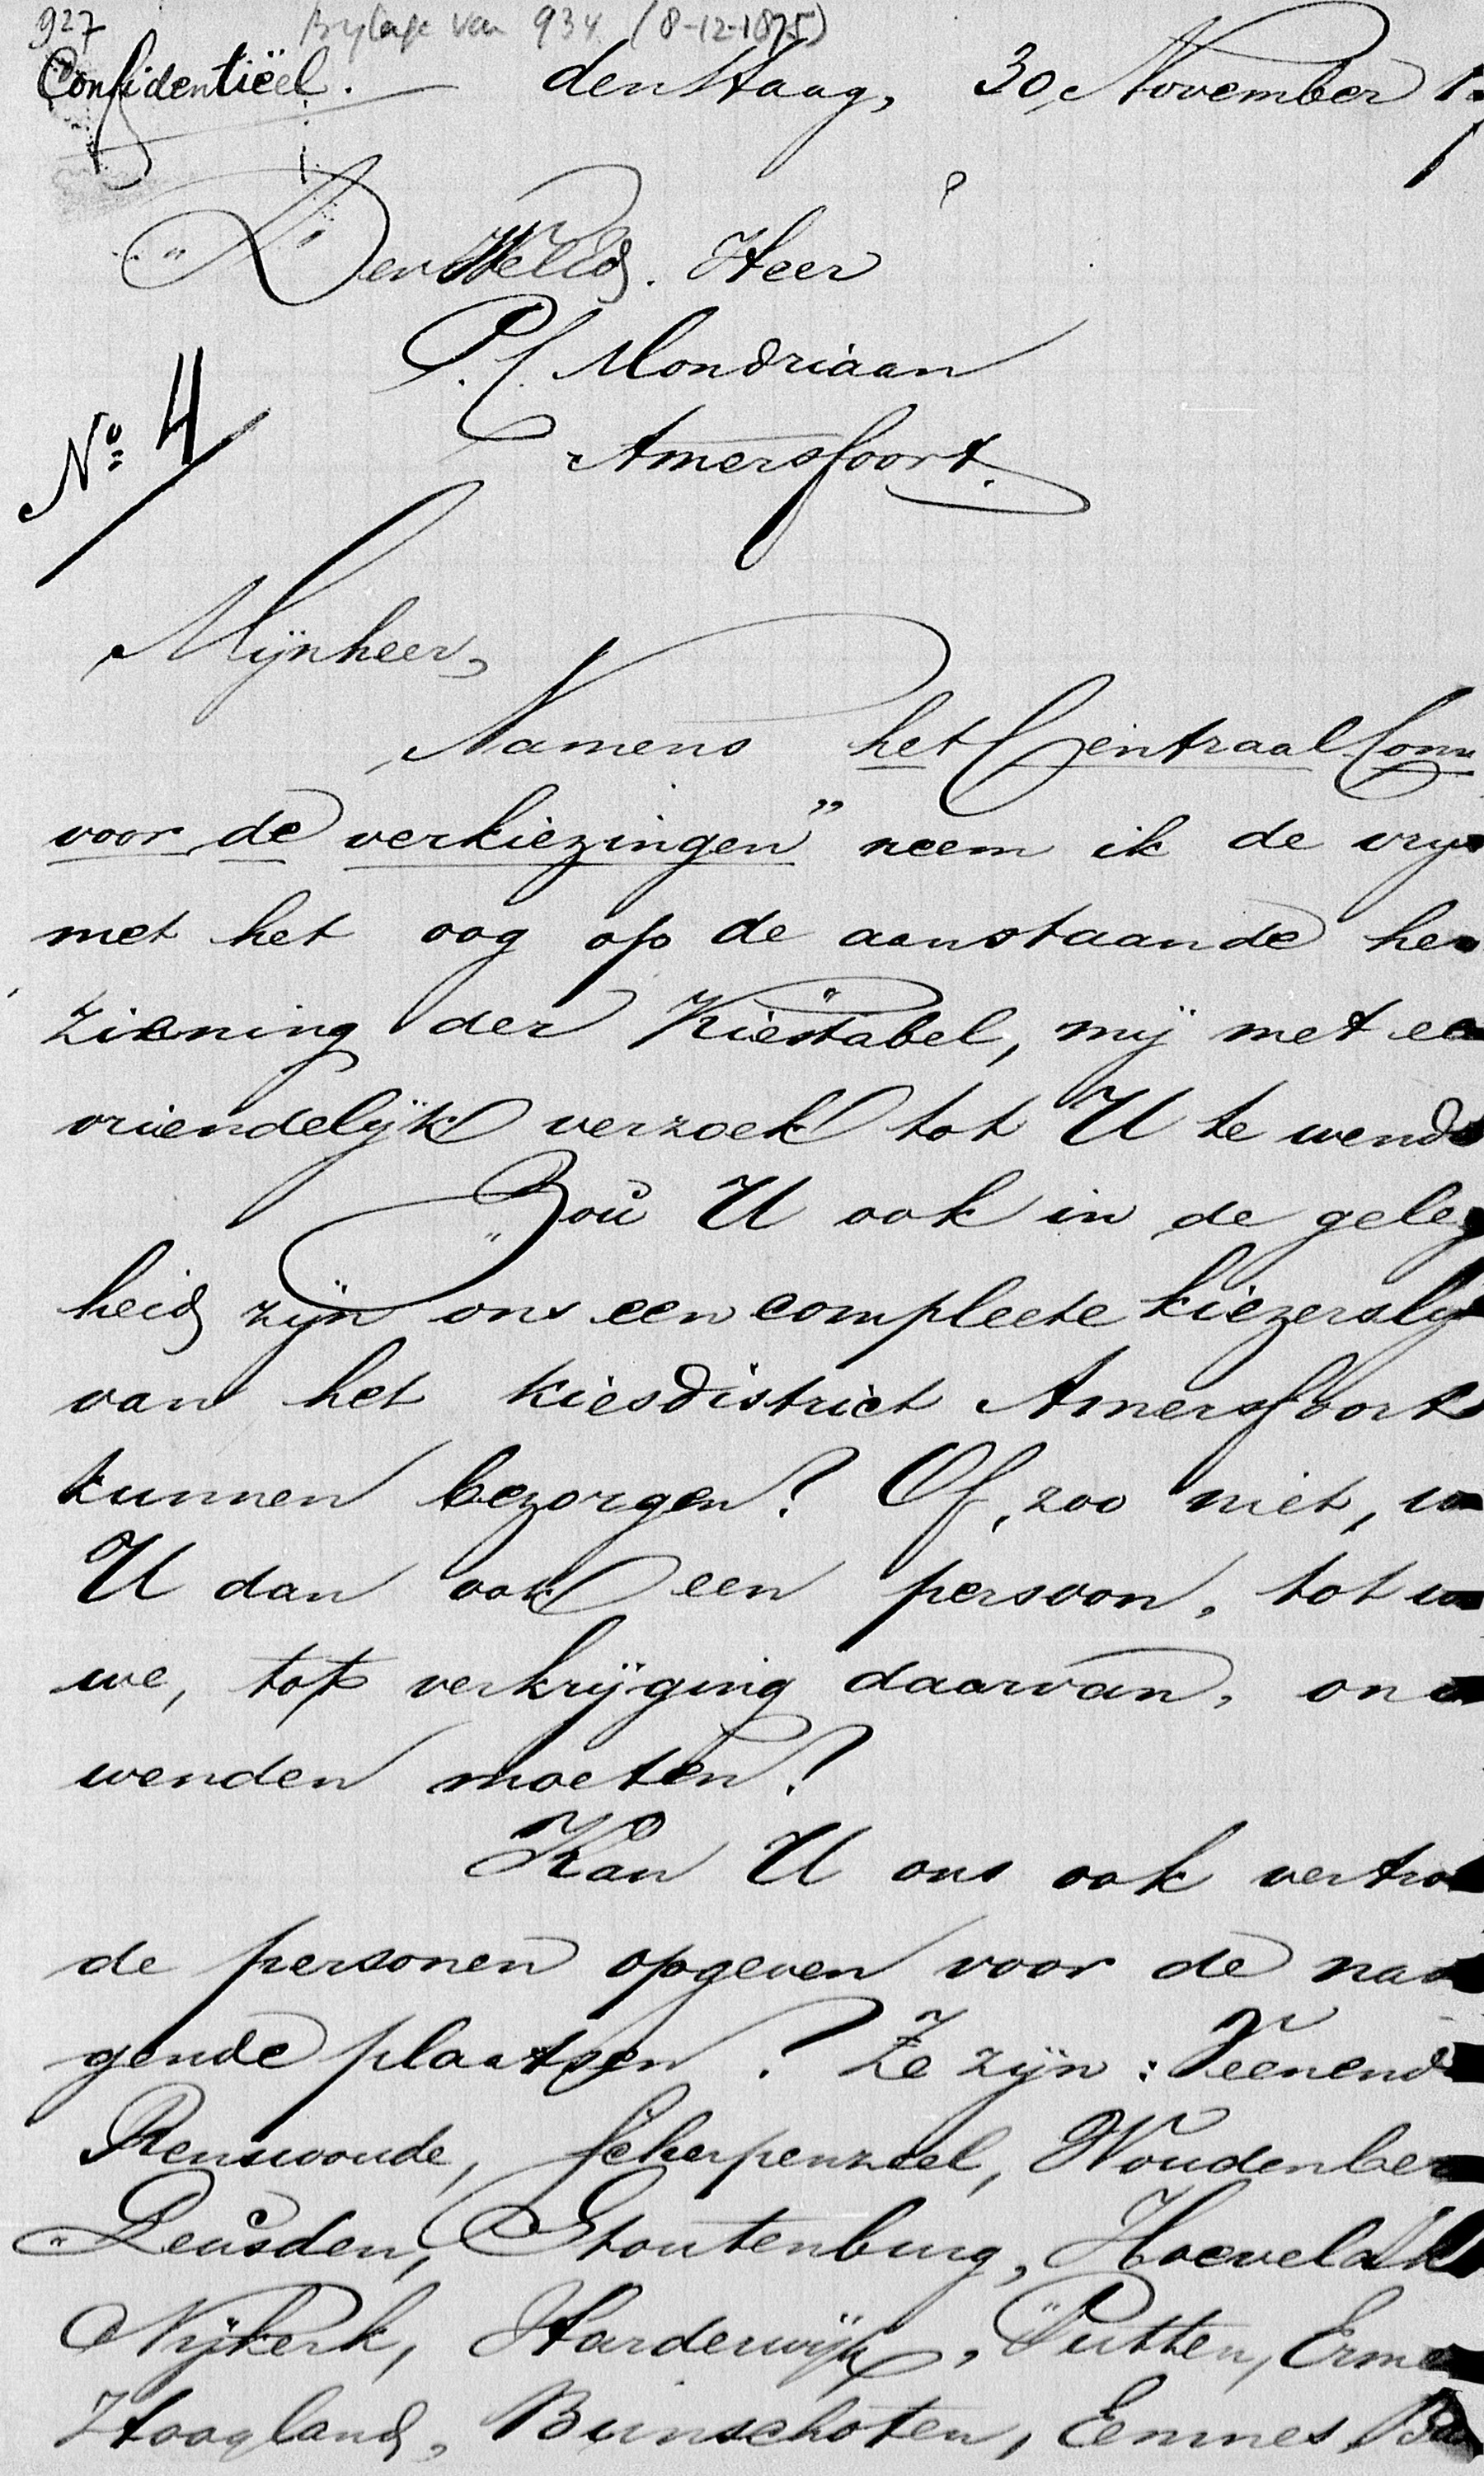 927 Bylage van 934 (8-12-1875)
Confidentiëel. den Haag, 30 November 1
Den WelEd. Heer
P. C. Mondriaan
No. 4
Amersfoort.
Mijnheer,
Namens "het Centraal Com
voor de verkiezingen" neem ik de vry
met het oog op de aanstaande her
ziening der Kiestabel, mij met ee
vriendelijk verzoek tot U te wend
Zou U ook in de geleg
heid zijn ons een compleete kiezersly
van het kiesdistrict Amersfoort
kunnen bezorgen? Of, zoo niet, w
U dan ook een persoon, tot w
we, tot verkrijging daarvan, ons
wenden moeten?
Kan U ons ook vertro
de personen opgeven voor de nav
gende plaatsen? Ze zijn: Veenend
Renswoude, Scherpenzeel, Woudenber
Leusden, Stoutenburg, Hoevelak
Nijkerk, Harderwijk, Putten, Erme
Hoogland, Bunschoten, Eemnes, Ba